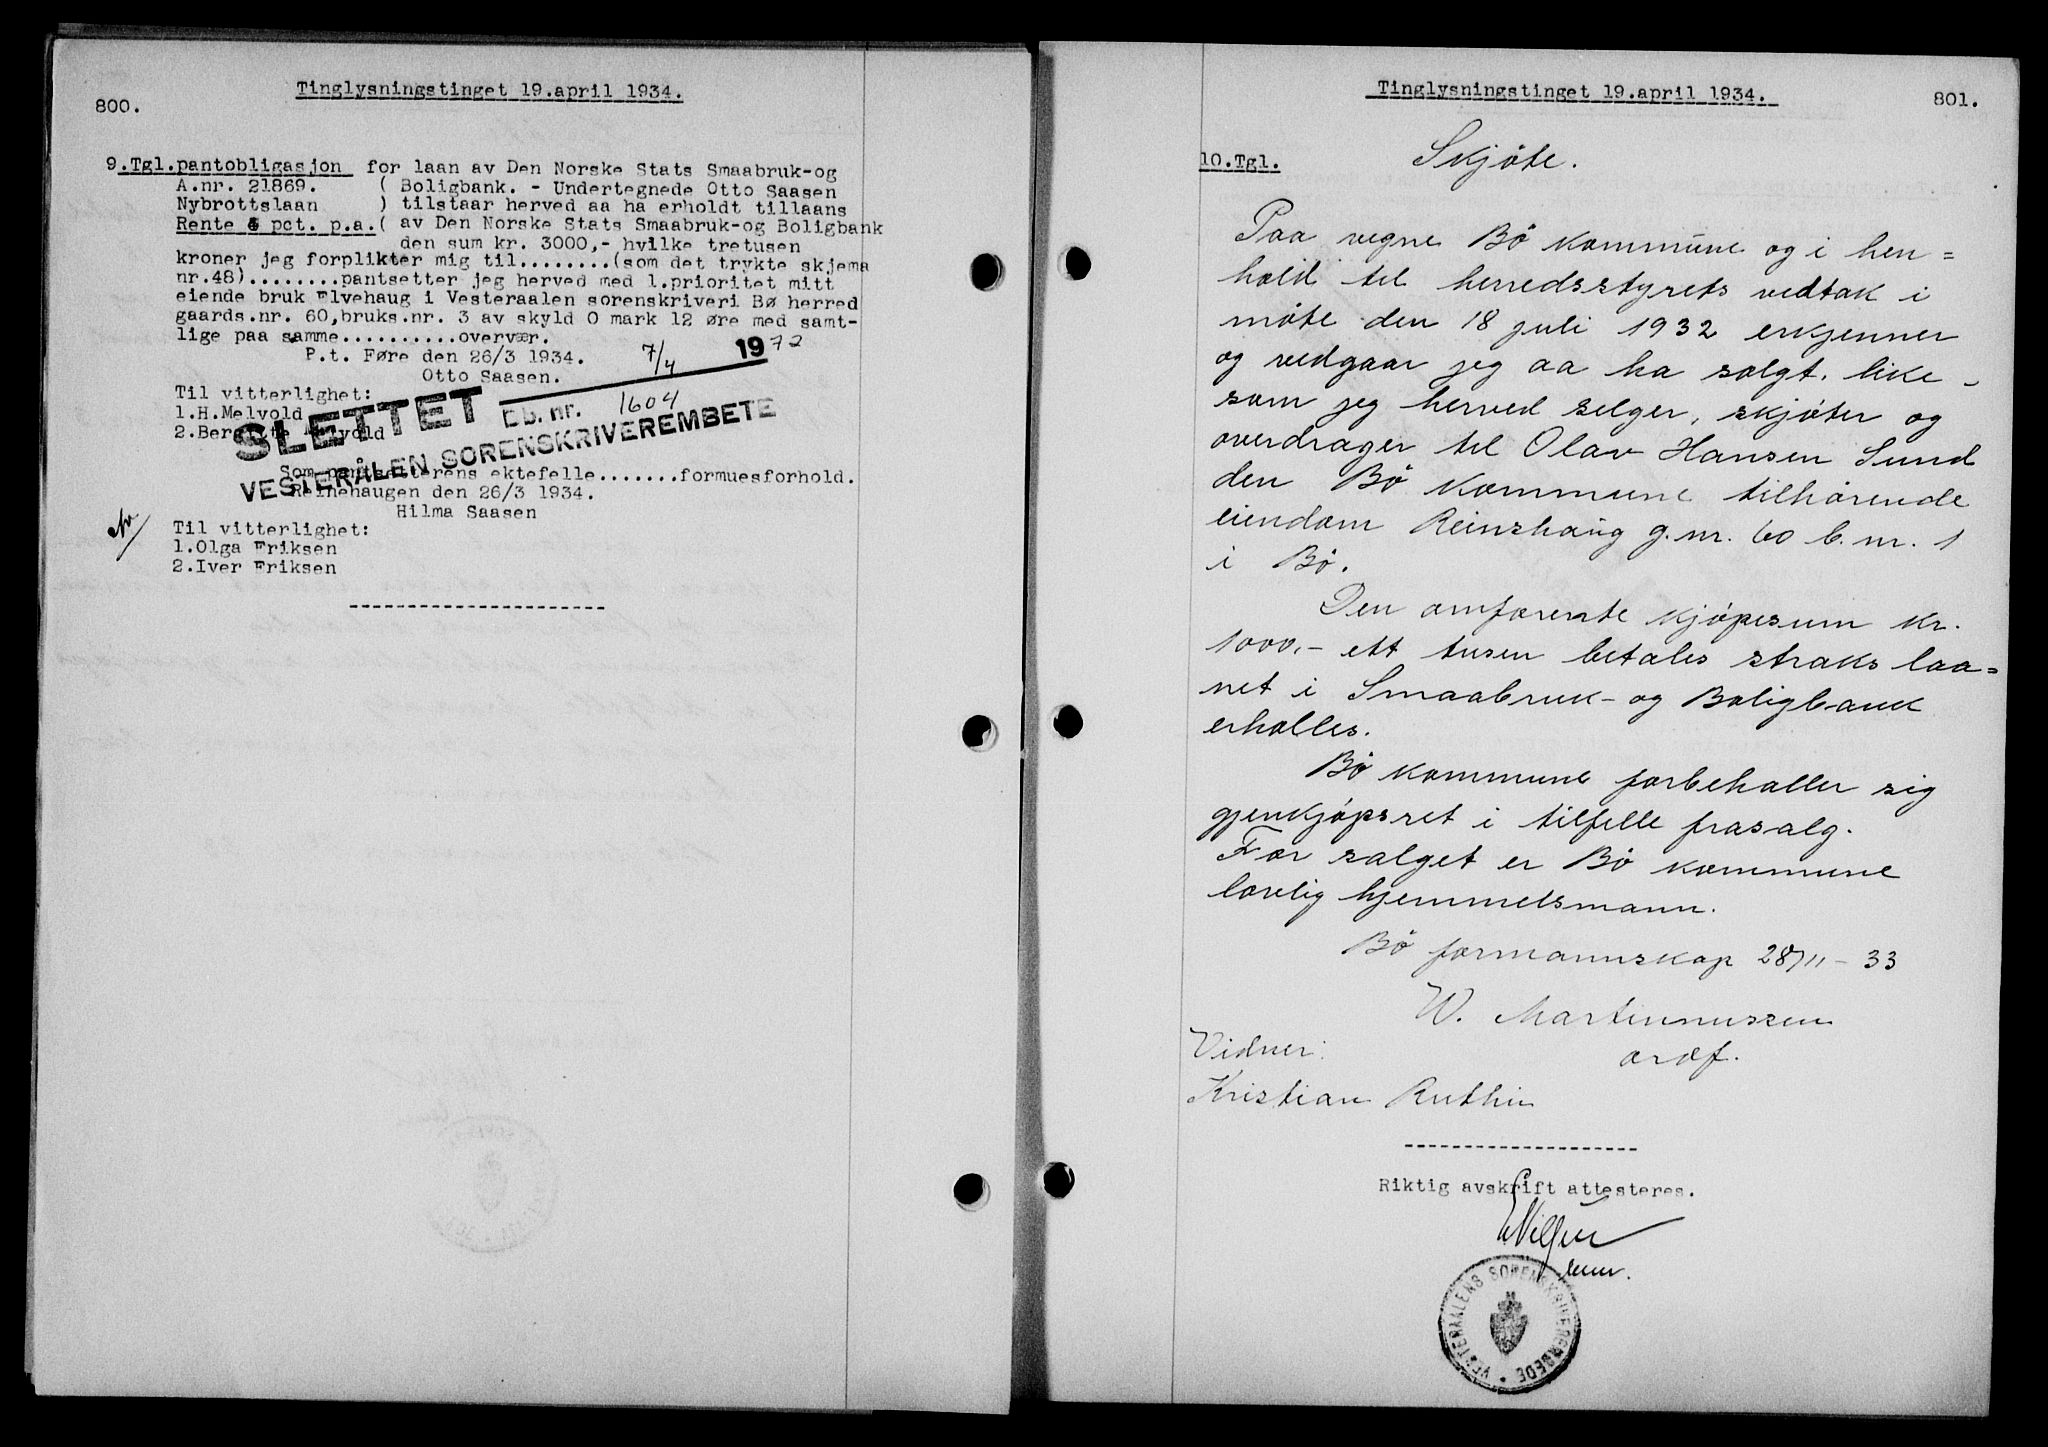 800.
Tinglysningstinget 19.april 1934.
9.Tgl.pantobligasjon for laan av Den Norske Stats Smaabruk-og
A.nr. 21869. ( Boligbank. - Undertegnede Otto Saasen
Nybrottslaan ) tilstaar herved aa ha erholdt tillaans
Rente 4 pct. p.a.( av Den Norske Stats Smaabruk-og Boligbank
den sum kr. 3000,- hvilke tretusen
kroner jeg forplikter mig til........(som det trykte skjema
nr.48)........pantsetter jeg herved med 1.prioritet mitt
eiende bruk Elvehaug i Vesteraalen sorenskriveri Bø herred
gaards.nr. 60,bruks.nr. 3 av skyld 0 mark 12 øre med samt-
lige paa samme..........overvær.
P.t. Føre den 26/3 1934.
Otto Saasen.
7/4 1972
Til vitterlighet:
1.H.Melvold
SLETTET Db. nr. 1604
VESTERÅLEN SORENSKRIVEREMBETE
Som pantsetterens ektefelle.......formuesforhold.
Reinehaugen den 26/3 1934.
Hilma Saasen
Til vitterlighet:
1.Olga Eriksen
2.Iver Eriksen
Tinglysningstinget 19.april 1934.
801.
10.Tgl. Skjöte.
Paa vegne Bö kommune og i hen=
hold til herredsstyrets vedtak i
möte den 18 juli 1932 erkjenner
og vedgaar jeg aa ha solgt. like-
som jeg herved selger, skjöter og
overdrager til Olav Hansen Sund
den Bö kommune tilhörende
eiendom Reinshaug g.nr. 60 b.nr. 1
i Bö.
Den omforente kjöpesum kr.
1000.- ett tusen betales straks laa=
net i Smaabruk- og Boligbank
erholles.
Bö kommune forbeholler sig
gjenkjöpsret i tilfelle frasalg.
For salget er Bö kommune
lovlig hjemmelsmann.
Bö formannskap 28/11-33
W. Martinnussen
Vidner: ordf.
Kristian Ruthin
Riktig avskrift attesteres.
VESTERAALENS SORENSKRIVEREMBEDE